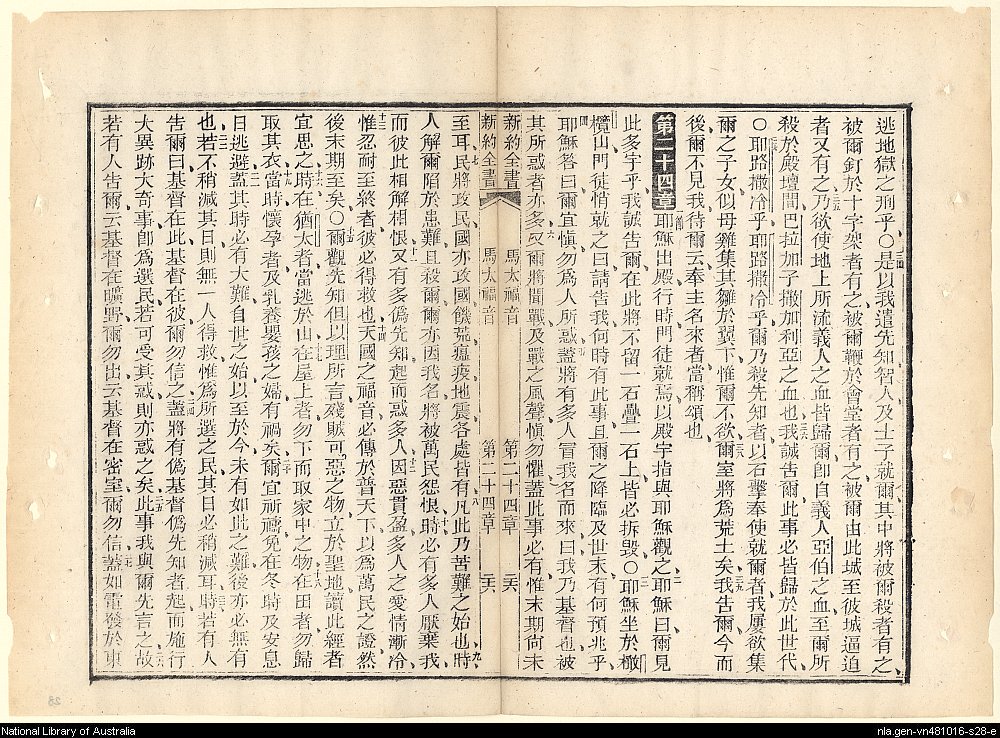 逃地獄之刑乎〇是以我遣先知智人及士子就爾其中將被爾殺者有之
被爾釘於十字架者有之被爾鞭於會堂者有之被爾由此城至彼城逼迫
者又有之乃欲使地上所流義人之血皆歸爾卽自義人亞伯之血至爾所
殺於殿壇間巴拉加子撒加利亞之血也我誠告爾此事必皆歸於此世代
〇耶路撒冷乎耶路撒冷乎爾乃殺先知者以石擊奉使就爾者我屢欲集
爾之子女似母雞集其雛於翼下惟爾不欲爾室將爲荒土矣我告爾今而
後爾不見我待爾云奉主名來者當稱頌也
第二十四章耶穌出殿行時門徒就焉以殿宇指與耶穌觀之耶穌曰爾見
此多宇乎我誠告爾在此將不留一石疊一石上皆必拆毁〇耶穌坐於橄
欖山門徒悄就之曰請告我何時有此事且爾之降臨及世末有何預兆乎
耶穌答曰爾宜愼勿爲人所惑蓋將有多人冒我名而來曰我乃基督也被
其所惑者亦多又爾將聞戰及戰之風聲愼勿懼蓋此事必有惟末期尙未
新約全書 馬太福音 第二十四章 二六
新約全書 馬太福音 第二十四章 二六
至耳民將攻民國亦攻國饑荒瘟疫地震各處皆有凡此乃苦難之始也時
人解爾陷於患難且殺爾爾亦因我名將被萬民怨恨時必有多人厭棄我
而彼此相解相恨又有多僞先知起而惑多人因惡貫盈多人之愛情漸冷
惟忍耐至終者彼必得救也天國之福音必傳於普天下以爲萬民之證然
後末期至矣〇爾觀先知但以理所言殘賊可惡之物立於聖地讀此經者
宜思之時在猶太者當逃於山在屋上者勿下而取家中之物在田者勿歸
取其衣當時懷孕者及乳養嬰孩之婦有禍矣爾宜祈禱免在冬時及安息
日逃避蓋其時必有大難自世之始以至於今未有如此之難後亦必無有
也若不稍減其日則無一人得救惟爲所選之民其日必稍減耳時若有人
告爾曰基督在此基督在彼爾勿信之蓋將有僞基督僞先知者起而施行
大異跡大奇事卽爲選民若可受其惑則亦惑之矣此事我與爾先言之故
若有人告爾云基督在曠野爾勿出云基督在密室爾勿信蓋如電發於東
28
National Library of Australia
nla.gen-vn481016-s28-e